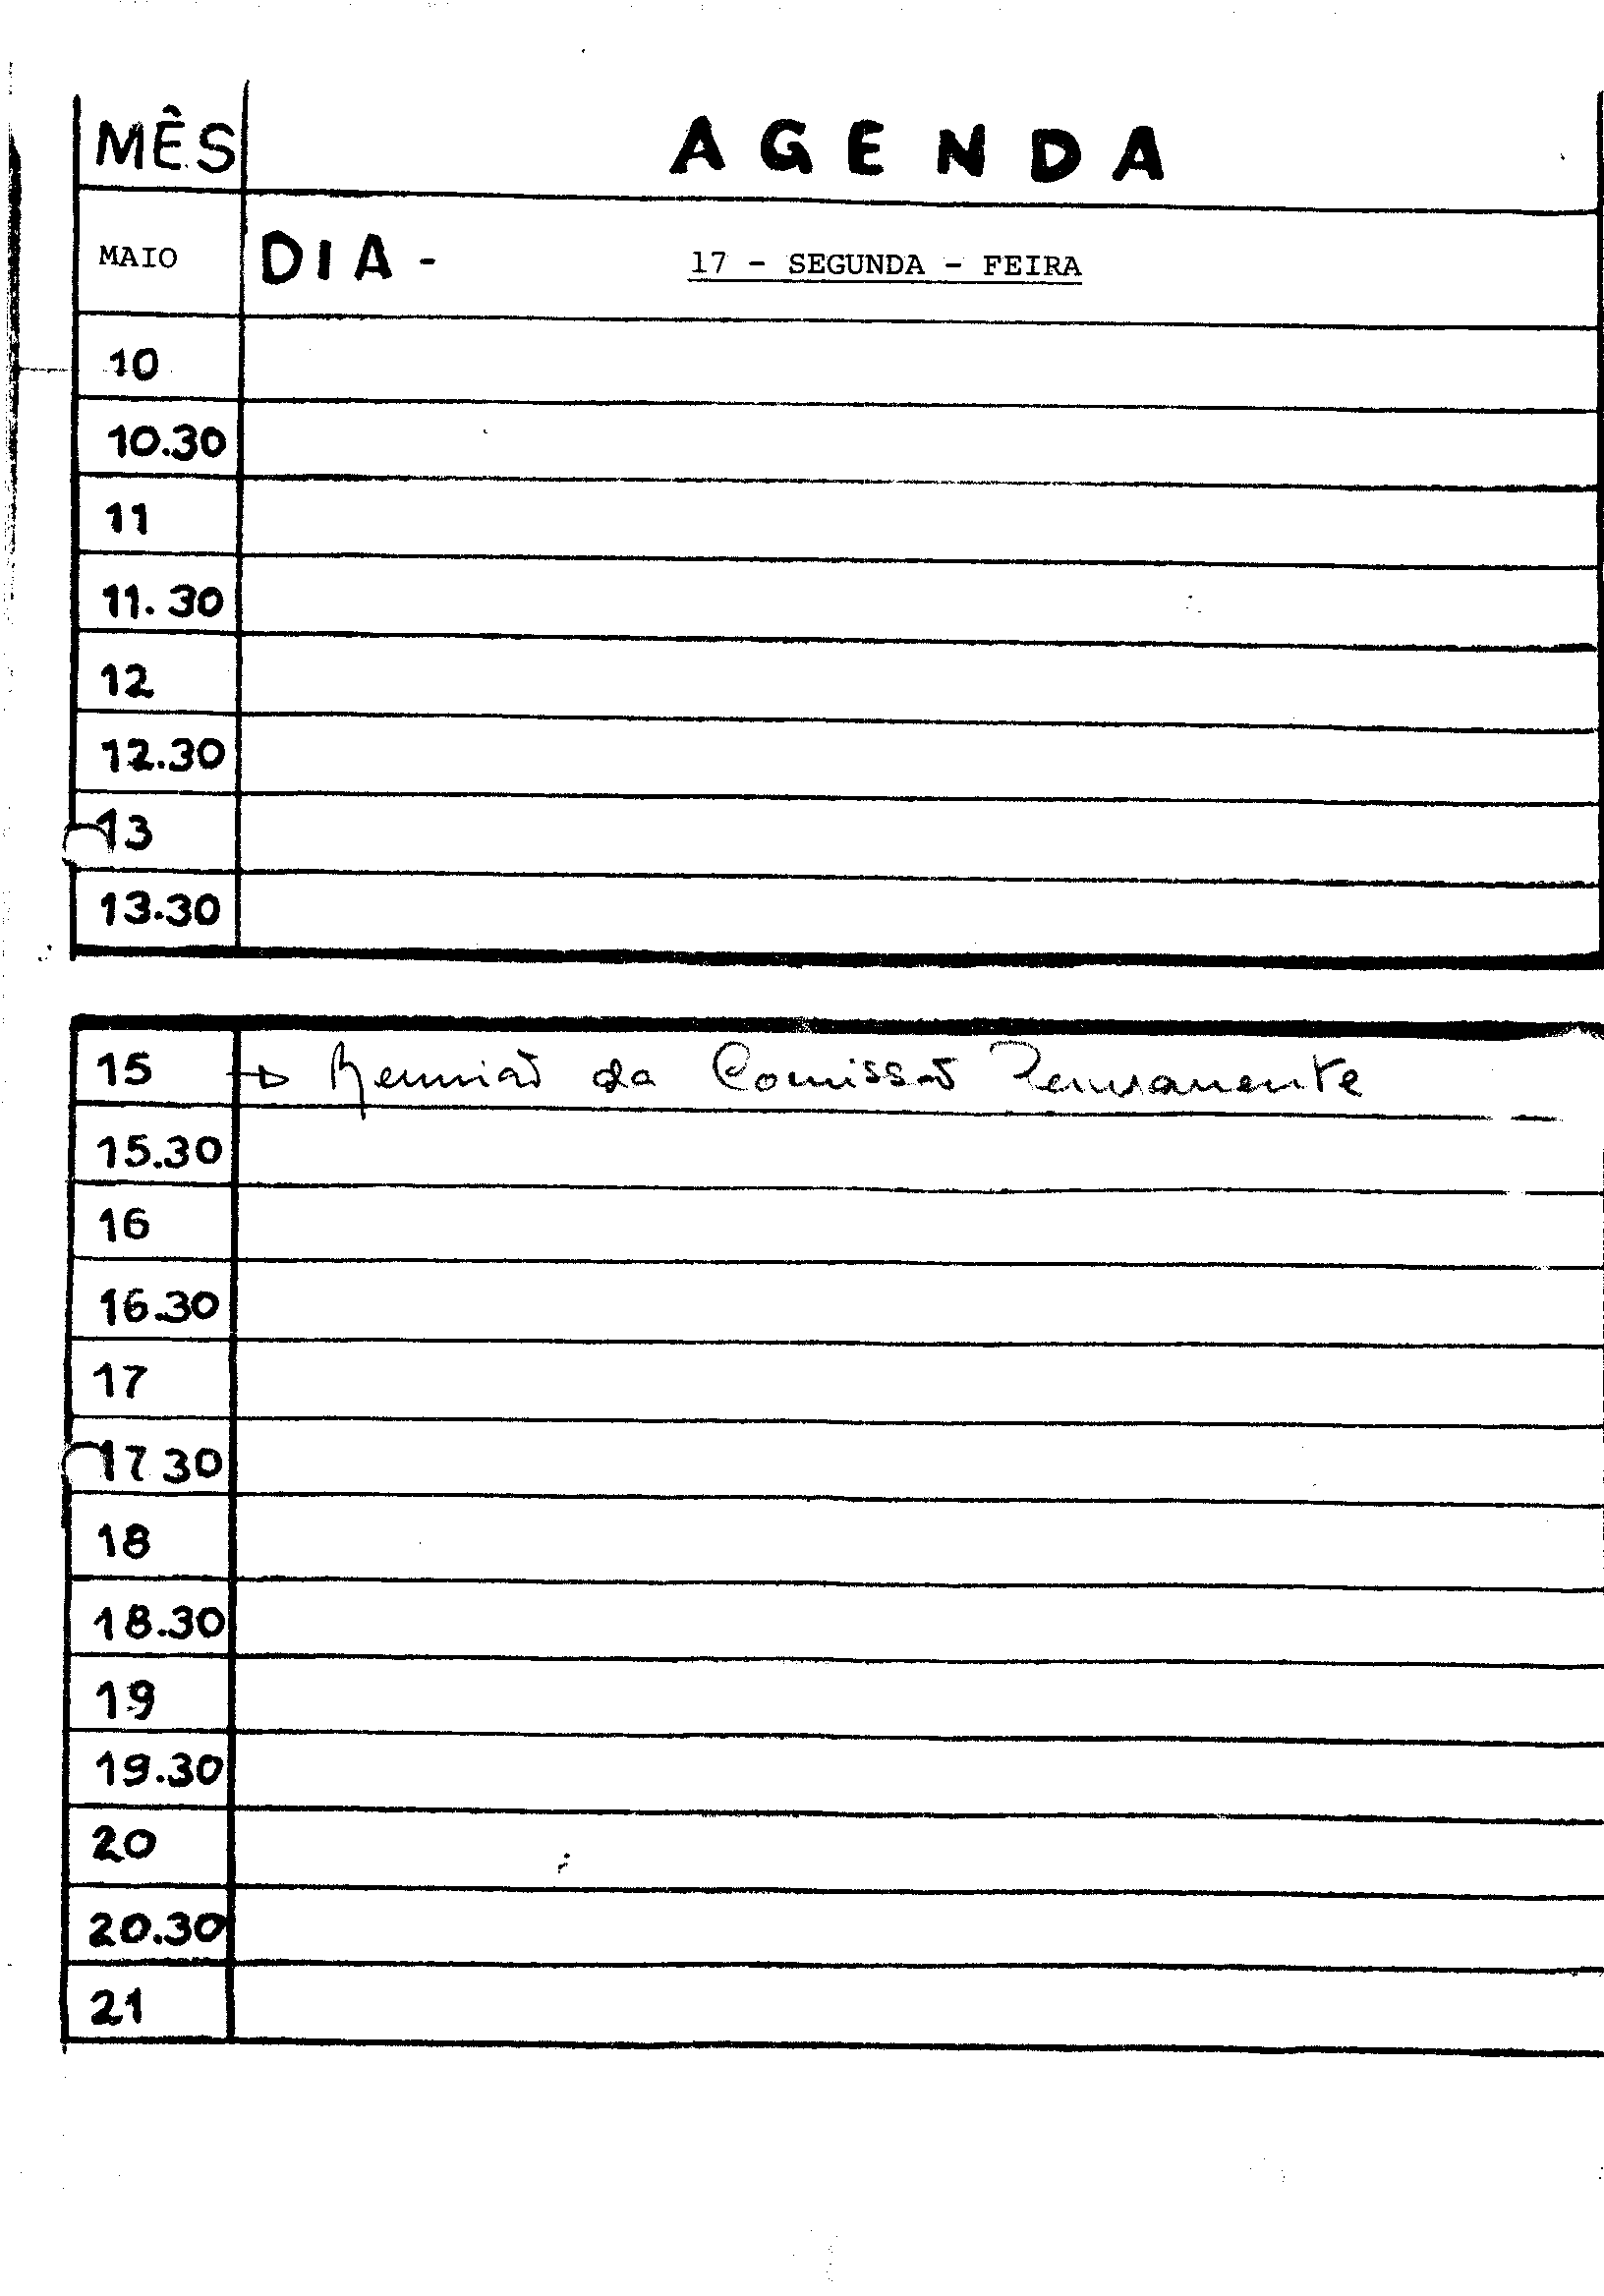 MÊS AGENDA
MAIO DIA - 17 - SEGUNDA - FEIRA
10
10.30
11
11.30
12
12.30
13
13.30
15 → Reunião da Comissão Permanente
15.30
16
16.30
17
17 30
18
18.30
19
19.30
20
20.30
21